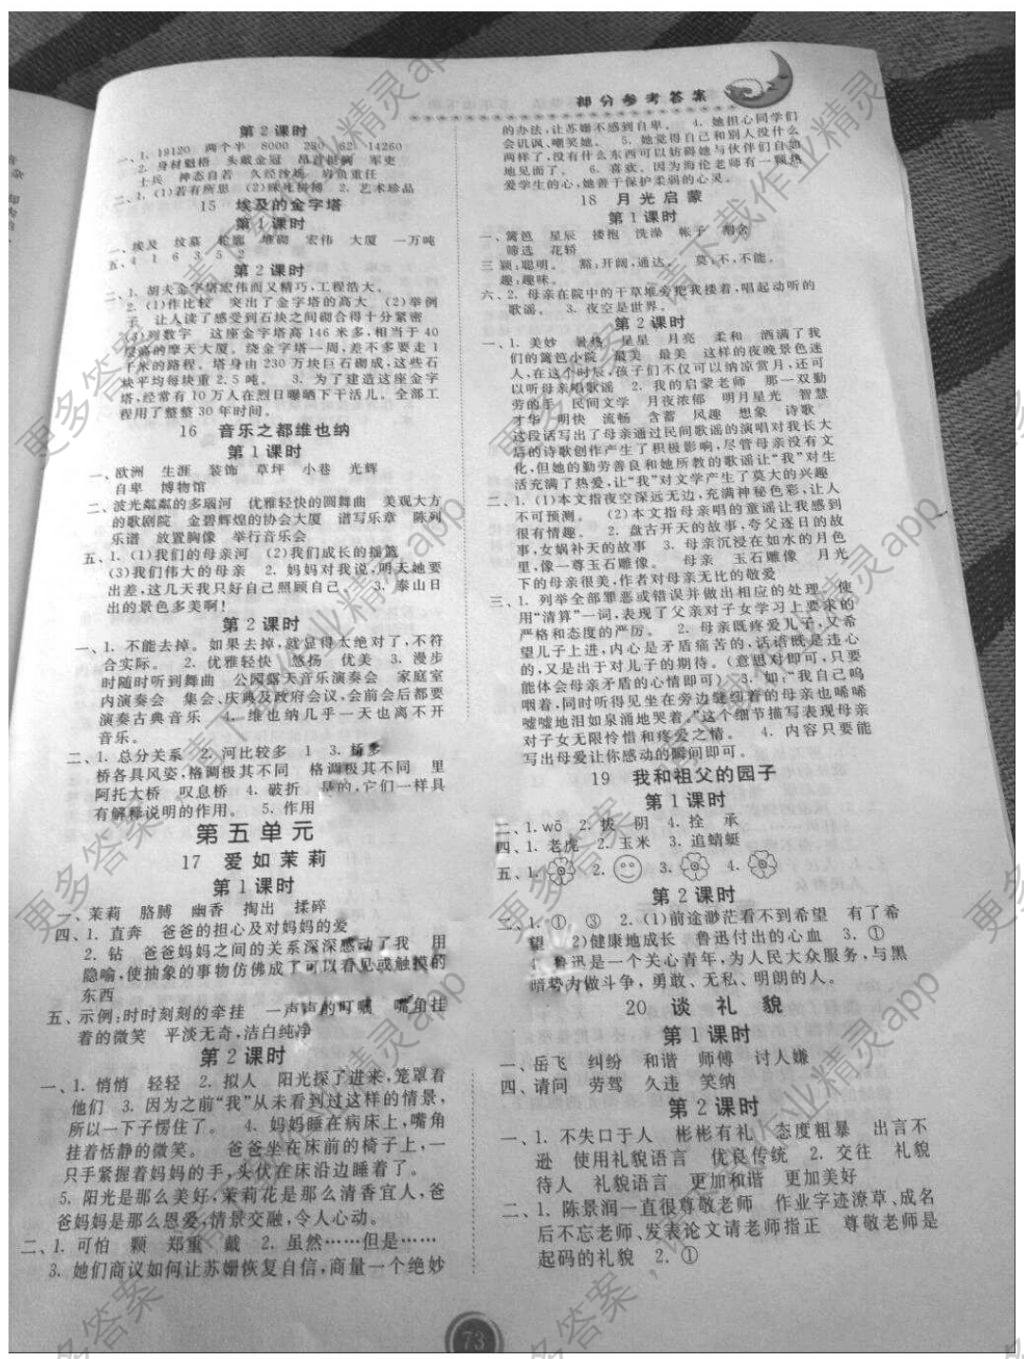 部分参考答案
第2课时
一、1. 19120 两个半 8000 250 62 14260
2. 身材魁梧 头戴金冠 昂首挺胸 军吏
士兵 神态自若 久经沙场 肩负重任
二、1. (1)若有所思 (2)跃跃欲试 2. 艺术珍品
15 埃及的金字塔
第1课时
一、埃及 坟墓 轮廓 堆砌 宏伟 大厦 一万吨
五、4 1 6 3 5 2
第2课时
一、1. 胡夫金字塔宏伟而又精巧,工程浩大。
2. (1)作比较 突出了金字塔的高大 (2)举例
子 让人读了感受到石块之间砌合得十分紧密
(3)列数字 这座金字塔高146米多,相当于40
层高的摩天大厦。绕金字塔一周,差不多要走1
千米的路程。塔身由230万块巨石砌成,这些石
块平均每块重2.5吨。 3. 为了建造这座金字
塔,经常有10万人在烈日曝晒下干活儿。全部工
程用了整整30年时间。
16 音乐之都维也纳
第1课时
一、欧洲 生涯 装饰 草坪 小巷 光辉
自卑 博物馆
二、波光粼粼的多瑙河 优雅轻快的圆舞曲 美观大方
的歌剧院 金碧辉煌的协会大厦 谱写乐章 陈列
乐谱 放置胸像 举行音乐会
五、1. (1)我们的母亲河 (2)我们成长的摇篮
(3)我们伟大的母亲 2. 妈妈对我说,明天她要
出差,这几天我只好自己照顾自己 3. 泰山日
出的景色多美啊!
第2课时
一、1. 不能去掉。如果去掉,就显得太绝对了,不符
合实际。 2. 优雅轻快 悠扬 优美 3. 漫步
时随时听到舞曲 公园露天音乐演奏会 家庭室
内演奏会 集会、庆典及政府会议,会前会后都要
演奏古典音乐 4. 维也纳几乎一天也离不开
音乐。
二、1. 总分关系 2. 河比较多 1 3. 桥多
桥各具风姿,格调极其不同 格调极其不同 里
阿托大桥 叹息桥 4. 破折 是的,它们一样具
有解释说明的作用。 5. 作用
第五单元
17 爱如茉莉
第1课时
一、茉莉 胳膊 幽香 掏出 揉碎
四、1. 直奔 爸爸的担心及对妈妈的爱
2. 钻 爸爸妈妈之间的关系深深感动了我 用
隐喻,使抽象的事物仿佛成了可以看见或触摸的
东西
五、示例:时时刻刻的牵挂 一声声的叮嘱 嘴角挂
着的微笑 平淡无奇,洁白纯净
第2课时
一、1. 悄悄 轻轻 2. 拟人 阳光探了进来,笼罩着
他们 3. 因为之前“我”从未看到过这样的情景,
所以一下子愣住了。 4. 妈妈睡在病床上,嘴角
挂着恬静的微笑。 爸爸坐在床前的椅子上,一
只手紧握着妈妈的手,头伏在床沿边睡着了。
5. 阳光是那么美好,茉莉花是那么清香宜人,爸
爸妈妈是那么恩爱,情景交融,令人心动。
二、1. 可怕 颗 郑重 戴 2. 虽然……但是……
3. 她们商议如何让苏姗恢复自信,商量一个绝妙
的办法,让苏姗不感到自卑。 4. 她担心同学们
会讥讽、嘲笑她。 5. 她觉得自己和别人没什么
两样了,没有什么东西可以妨碍她与伙伴们自如
地见面了。 6. 喜欢。因为海伦老师有一颗热
爱学生的心,她善于保护柔弱的心灵。
18 月光启蒙
第1课时
一、篱笆 星辰 搂抱 洗澡 帐子
筛选 花轿
三、颖:聪明。 豁:开阔,通达。 莫:不,不能。
趣:趣味。
六、2. 母亲在院中的干草堆旁把我搂着,唱起动听的
歌谣。 3. 夜空是世界。
第2课时
一、1. 美妙 暑热 星星 月亮 柔和 洒满了我
们的篱笆小院 最美 最美 这样的夜晚景色迷
人,在这个时辰,孩子们不仅可以纳凉赏月,还可
以听母亲唱歌谣 2. 我的启蒙老师 那一双勤
劳的手 民间文学 月夜浓郁 明月星光 智慧
才华 明快 流畅 含蓄 风趣 想象 诗歌
这段话写出了母亲通过民间歌谣的演唱对我长大
后的诗歌创作产生了积极影响,尽管母亲没有文
化,但她的勤劳善良和她所教的歌谣让“我”对生
活充满了热爱,让“我”对文学产生了莫大的兴趣
二、1. (1)本文指夜空深远无边,充满神秘色彩,让人
不可预测。 (2)本文指母亲唱的童谣让我感到
很有情趣。 2. 盘古开天的故事,夸父逐日的故
事,女娲补天的故事 3. 母亲沉浸在如水的月色
里,像一尊玉石雕像。 母亲 玉石雕像 月光
下的母亲很美,作者对母亲无比的敬爱
三、1. 列举全部罪恶或错误并做出相应的处理 使
用“清算”一词,表现了父亲对子女学习上要求的
严格和态度的严厉。 2. 母亲既疼爱儿子,又希
望儿子上进,内心是矛盾痛苦的,话语既是违心
的,又是出于对儿子的期待。(意思对即可,只要
能体会母亲矛盾的心情即可) 3. 如:“我自己呜
咽着,同时听得见坐在旁边缝纫着的母亲也唏唏
嘘嘘地泪如泉涌地哭着。”这个细节描写表现母亲
对子女无限怜惜和疼爱之情。 4. 内容只要能
写出母爱让你感动的瞬间即可。
19 我和祖父的园子
第1课时
二、1. wō 2. 拔 阴 4. 拴 承
四、1. 老虎 2. 玉米 3. 追蜻蜓
五、1. 2. 3. 4.
第2课时
二、1. ① ③ 2. (1)前途渺茫看不到希望 有了希
望 2)健康地成长 鲁迅付出的心血 3. ①
4. 鲁迅是一个关心青年,为人民大众服务,与黑
暗势力做斗争,勇敢、无私、明朗的人。
20 谈礼貌
第1课时
一、岳飞 纠纷 和谐 师傅 讨人嫌
四、请问 劳驾 久违 笑纳
第2课时
一、1. 不失口于人 彬彬有礼 态度粗暴 出言不
逊 使用礼貌语言 优良传统 2. 交往 礼貌
待人 礼貌语言 更加和谐 更加美好
二、1. 陈景润一直很尊敬老师 作业字迹潦草,成名
后不忘老师,发表论文请老师指正 尊敬老师是
起码的礼貌 2. ①
73